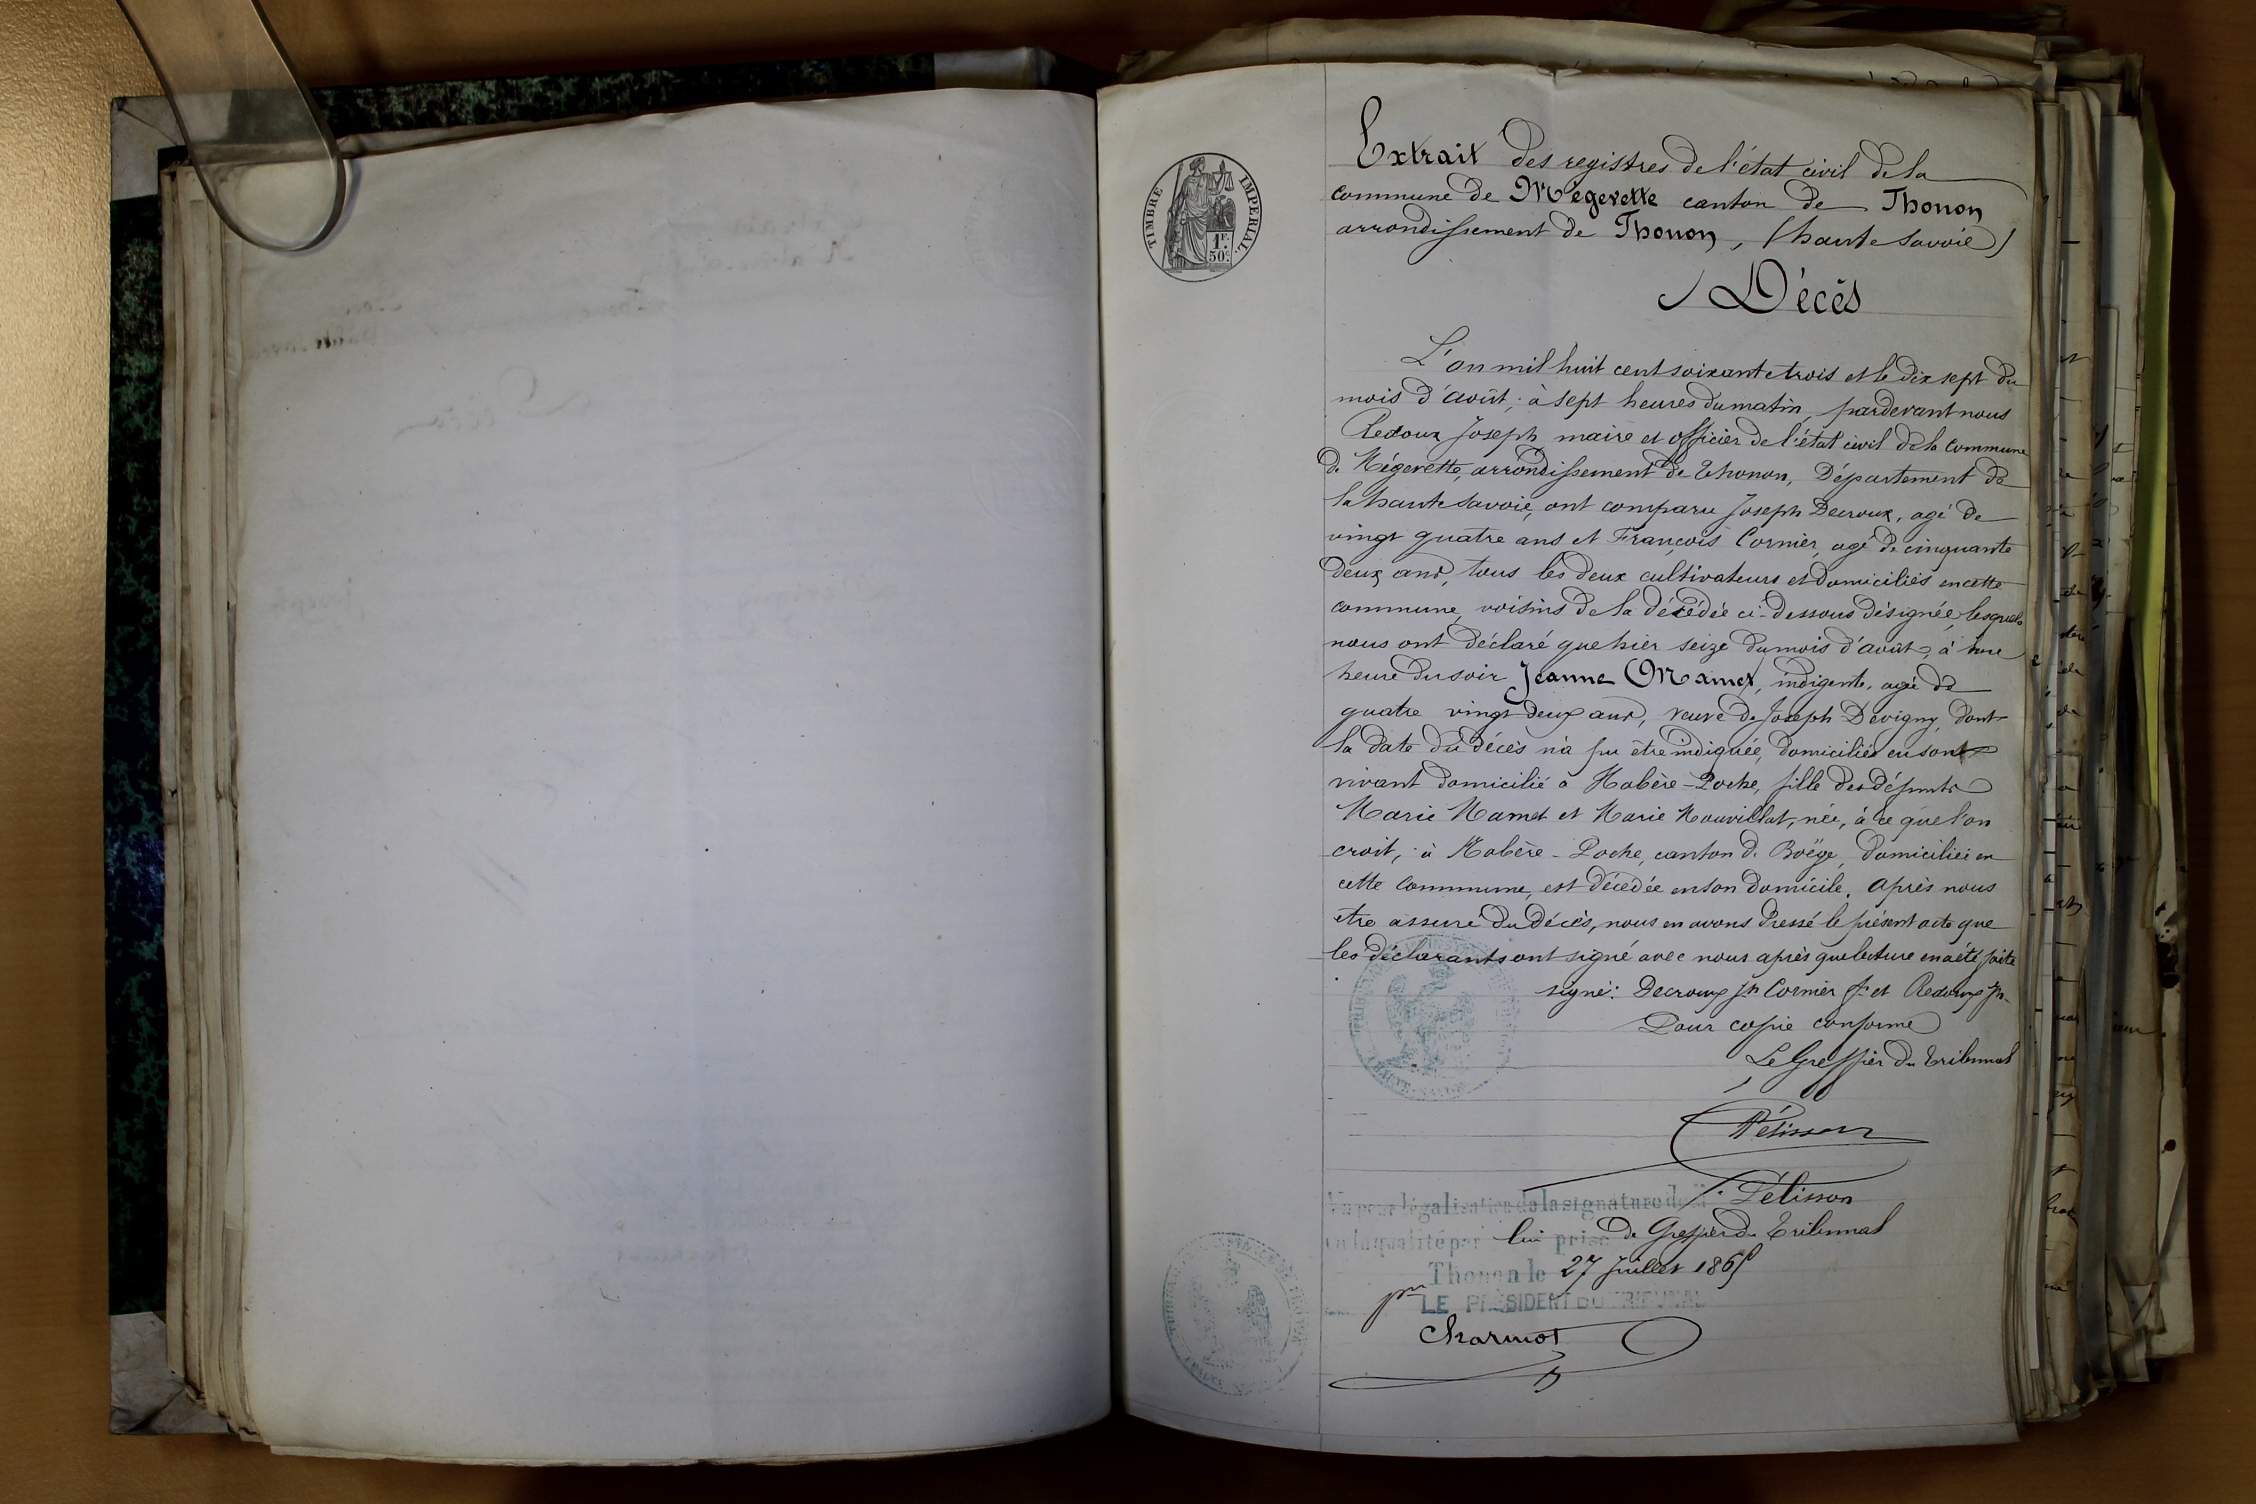 TIMBRE IMPERIAL
1F.
50c.
Extrait des registres de l'état civil de la
commune de Mégevette canton de Thonon
arrondissement de Thonon, (haute Savoie)
Décès
L'an mil huit cent soixante trois et le dix sept du
mois d'août, à sept heures du matin, pardevant nous
Redoux Joseph maire et officier de l'état civil de la commune
de Mégevette, arrondissement de Thonon, Département de
la haute Savoie, ont comparu Joseph Decroux, agé de
vingt quatre ans et François Cornier, agé de cinquante
deux ans, tous les deux cultivateurs et domiciliés en cette
commune, voisins de la décédée ci-dessous désignée, lesquels
nous ont déclaré que hier seize du mois d'août, à une
heure du soir Jeanne Mamet, indigente, agée de
quatre vingt deux ans, veuve de Joseph Dévigny, dont
la date du décès n'a pu être indiquée, domiciliée en son
vivant domicilié à Habère-Poche, fille des défunts
Marie Mamet et Marie Mouvillat, née, à ce que l'on
croit, à Habère-Poche, canton de Boëge, domiciliée en
cette commune, est décédée en son domicile. Après nous
être assuré du décès, nous en avons dressé le présent acte que
les déclarants ont signé avec nous après que lecture en a été faite
signé: Decroux jh Cornier f. et Redoux jh.
Pour copie conforme
Le Greffier du Tribunal
Pélisson
Vu pour légalisation de la signature de M. Pélisson
en la qualité par lui prise de Greffier du Tribunal
Thonon le 27 Juillet 1865
pr LE PRÉSIDENT DU TRIBUNAL
Charmot